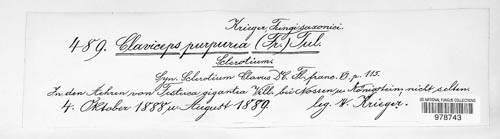 Krieger, Fungi saxonici.
489. Claviceps purpurea (Fr.) Tul.
Sclerotium.
Syn. Sclerotium Clavus DC. Fl. franc. VI. p. 115.
In den Aehren von Festuca gigantea Vill. bei Nossen u. Königstein, nicht selten.
4. Oktober 1888 u. August 1889. leg. W. Krieger.
US NATIONAL FUNGUS COLLECTIONS
978743